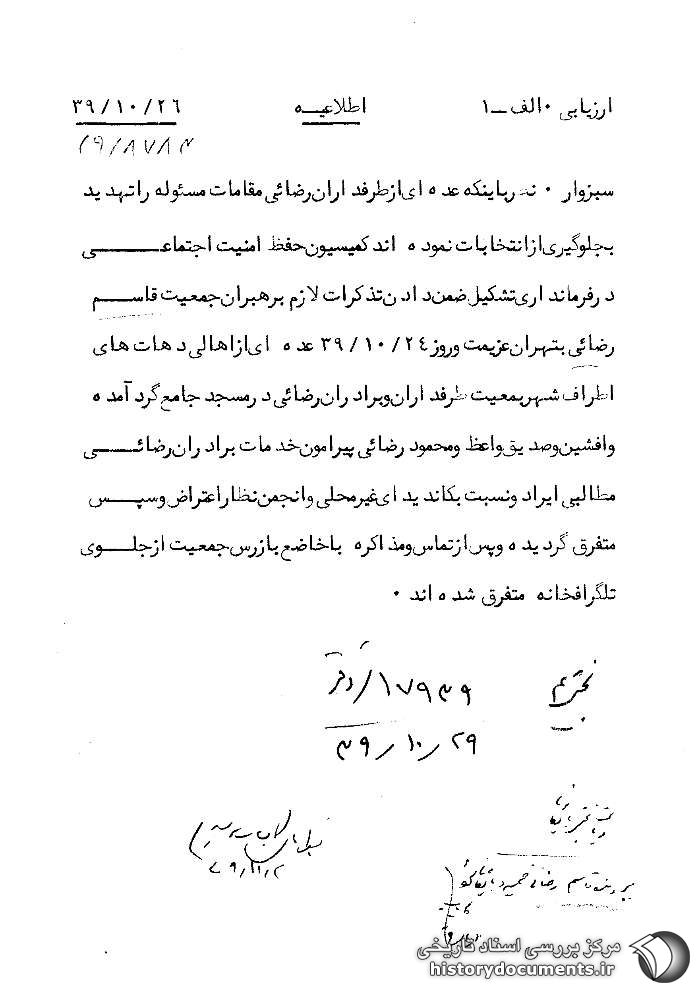 ارزیابی ۰ الف ــ ۱ اطلاعیــه ۳۹/۱۰/۲۶
سبزوار ۰ نظر باینکه عده ای از طرفداران رضائی مقامات مسئوله را تهدید
بجلوگیری از انتخابات نموده اند کمیسیون حفظ امنیت اجتماعــــی
در فرمانداری تشکیل ضمن دادن تذکرات لازم برهبران جمعیت قاســم
رضائی بتهران عزیمت و روز ۳۹/۱۰/۲۴ عده ای از اهالی دهات های
اطراف شهر بمعیت طرفداران و برادران رضائی در مسجد جامع گرد آمده
و افشین و صدیق واعظ و محمود رضائی پیرامون خدمات برادران رضائــــی
مطالبی ایراد و نسبت بکاندیدای غیر محلی و انجمن نظار اعتراض و سپــس
متفرق گردیده و پس از تماس و مذاکره با خاضع بازرس جمعیت از جلــوی
تلگرافخانه متفرق شده اند ۰
۱۷۹۳۹/دفتر
۳۹/۱۰/۲۹
مرکز بررسی اسناد تاریخی
historydocuments.ir